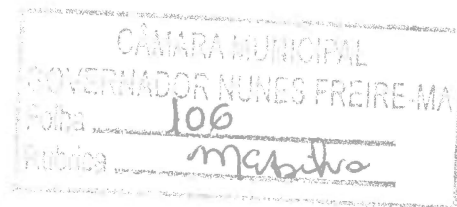 CÂMARA MUNICIPAL
GOVERNADOR NUNES FREIRE-MA
Folha 106
Rubrica